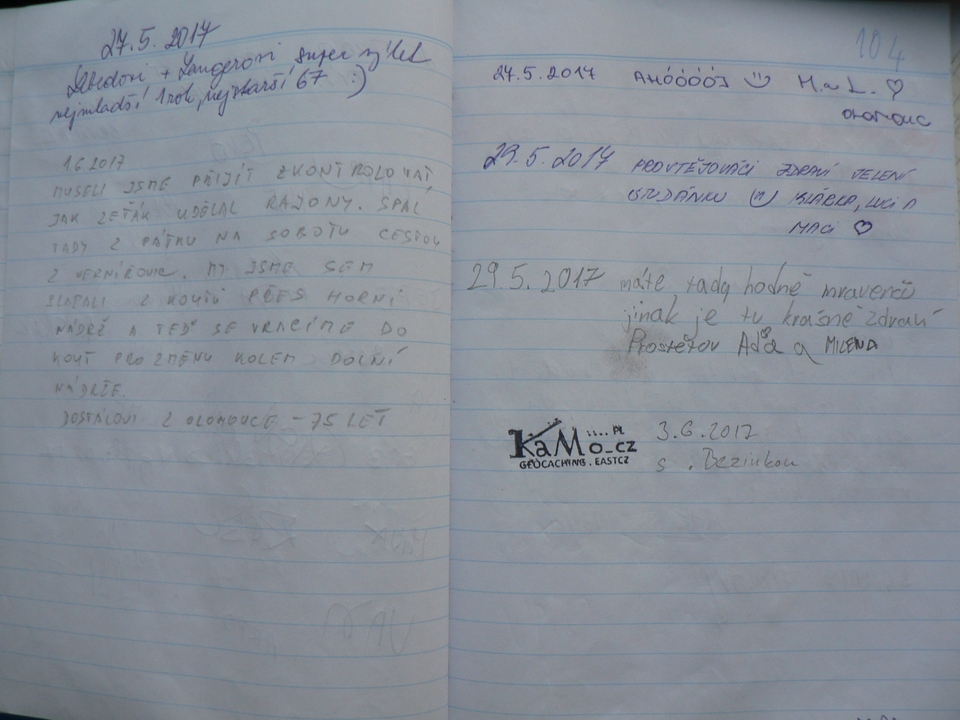 27.5.2017
Lebedovi + Langerovi super výlet
nejmladší 1 rok, nejstarší 67 :)
1.6.2017
MUSELI JSME PŘIJÍT ZKONTROLOVAT,
JAK ZEŤÁK UDĚLAL RAJONY. SPAL
TADY Z PÁTKU NA SOBOTU CESTOU
Z VERNÍŘOVIC. MY JSME SEM
ŠLAPALI Z KOUTŮ PŘES HORNÍ
NÁDRŽ A TEĎ SE VRACÍME DO
KOUT PRO ZMĚNU KOLEM DOLNÍ
NÁDRŽE.
DOSTÁLOVI Z OLOMOUCE - 75 LET
104
27.5.2017 AHÓÓÓÓJ :) M. a L. ♡
OLOMOUC
29.5.2017 PROSTĚJOVÁCI ZDRAVÍ JELENÍ
STUDÁNKU :) KLÁRKA, LUCI A
MACI ♡
29.5.2017 máte tady hodně mravenců
jinak je tu krásně zdraví
Prostějov Aďa a MILENA
KaMo_cz .PL
GEOCACHING.EASTCZ
3.6.2017
s